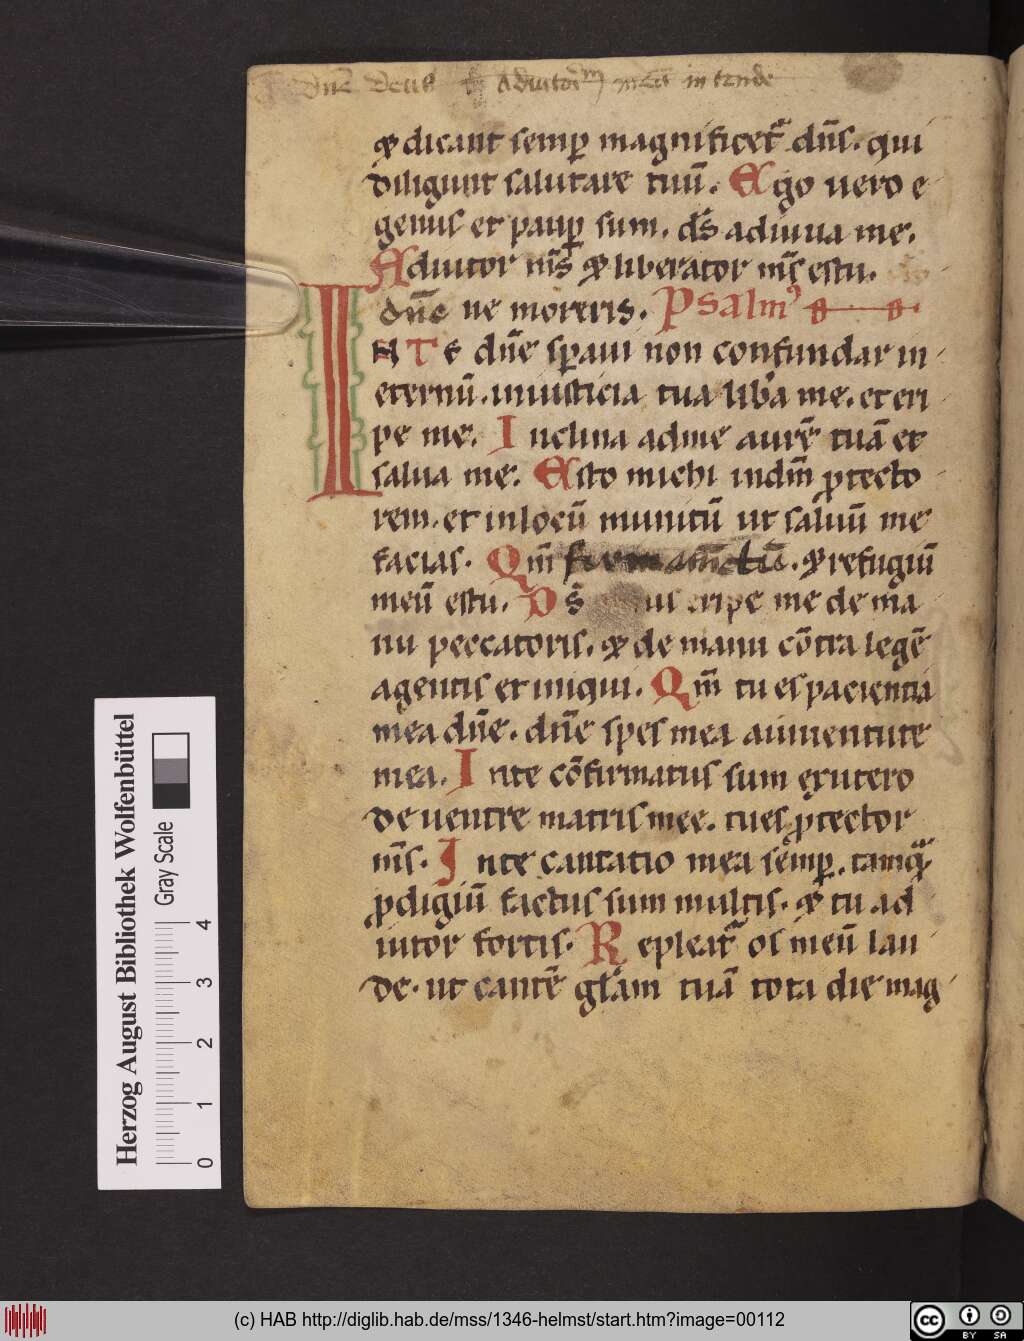 dn̄e deus adiutoriū meū intende
⁊ dicant semꝑ magnificet᷑ dn̄s. qui
diligunt salutare tuū. Ego uero e
genus et pauꝑ sum. ds̄ adiuua me.
Adiutor m̄s ⁊ liberator m̄s es tu.
dn̄e ne moreris. Psalmꝰ
INTE dn̄e sꝑaui non confundar in
eternū. in iusticia tua lib̓a me. et eri
pe me. Inclina ad me aurē tuā et
salua me. Esto michi in dm̄ ꝓtecto
rem. et in locū munitū ut saluū me
facias. Qm̄ firmamētū. ⁊ refugiū
meū es tu. Ds̄ eripe me de ma
nu peccatoris. ⁊ de manu cōtra legē
agentis et iniqui. Qm̄ tu es paciencia
mea dn̄e. dn̄e spes mea a iuuentute
mea. In te cōfirmatus sum ex utero
de uentre matris mee. tu es ꝓtector
m̄s. In te cantatio mea semꝑ. tamqᷓ
ꝓdigiū factus sum multis. ⁊ tu ad
iutor fortis. Repleat᷑ os meū lau
de. ut cantē gl̄am tuā tota die mag
Herzog August Bibliothek Wolfenbüttel
Gray Scale
0 1 2 3 4
(c) HAB http://diglib.hab.de/mss/1346-helmst/start.htm?image=00112
cc BY SA